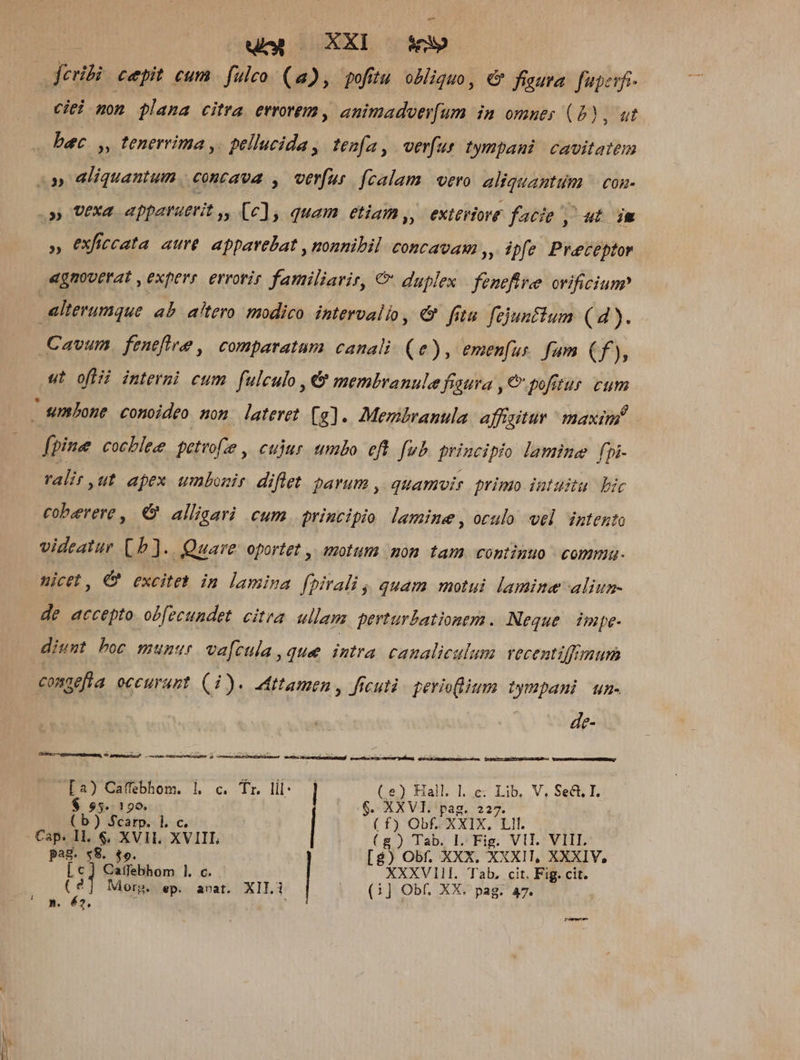 XXI
ſcribi cæpit cum ſulco (a), poſitu obliquo, & figura ſuperfi-
ciei non plana citra errorem, animadverſum in omnes (b), ut
hæc ,, tenerrima, pellucida, tenſa, verſus tympani cavitatem
,, aliquantum concava , verſus ſcalam vero aliquantum con-
,, vexa apparuerit ,, [c], quam etiam ,, exteriore facie , ut in
,, exſiccata aure apparebat , nonnihil concavam ,, ipſe Præceptor
agnoverat , expers erroris familiaris, & duplex feneſtræ orificium
alterumque ab altero modico intervallo, & ſitu ſejunctum (d).
Cavum feneſtræ, comparatum canali (e), emenſus ſum (f),
ut oſtii interni cum ſulculo, & membranulæ figura, & poſitus cum
umbone conoideo non lateret [g]. Membranula affigitur maxime
ſpinæ cochleæ petroſæ, cujus umbo eſt ſub principio laminæ ſpi-
ralis, ut apex umbonis diſtet parum, quamvis primo intuitu hic
cohærere, & alligari cum principio laminæ, oculo vel intento
videatur [h]. Quare oportet, motum non tam continuo commu-
nicet, & excitet in lamina ſpirali, quam motui laminæ aliun-
de accepto obſecundet citra ullam perturbationem. Neque impe-
diunt hoc munus vaſcula, quæ intra canaliculum recentiſſimum
congeſta occurunt (i). Attamen, ſicuti perioſtium tympani un-
de-
[a) Caſſebhom. l. c. Tr. III.
§ 95. 190.
(b) Scarp. l. c.
Cap. II. §. XVII. XVIII.
pag. 58. 59.
[c] Caſſebhom l. c.
(d] Morg. ep. anat. XII.
n. 62.
(e) Hall. l. c. Lib. V. Sect. I.
§. XXVI. pag. 227.
(f) Obſ. XXIX. LII.
(g) Tab. I. Fig. VII. VIII.
[g) Obſ. XXX. XXXII, XXXIV,
XXXVIII. Tab. cit. Fig. cit.
(i] Obſ. XX. pag. 47.